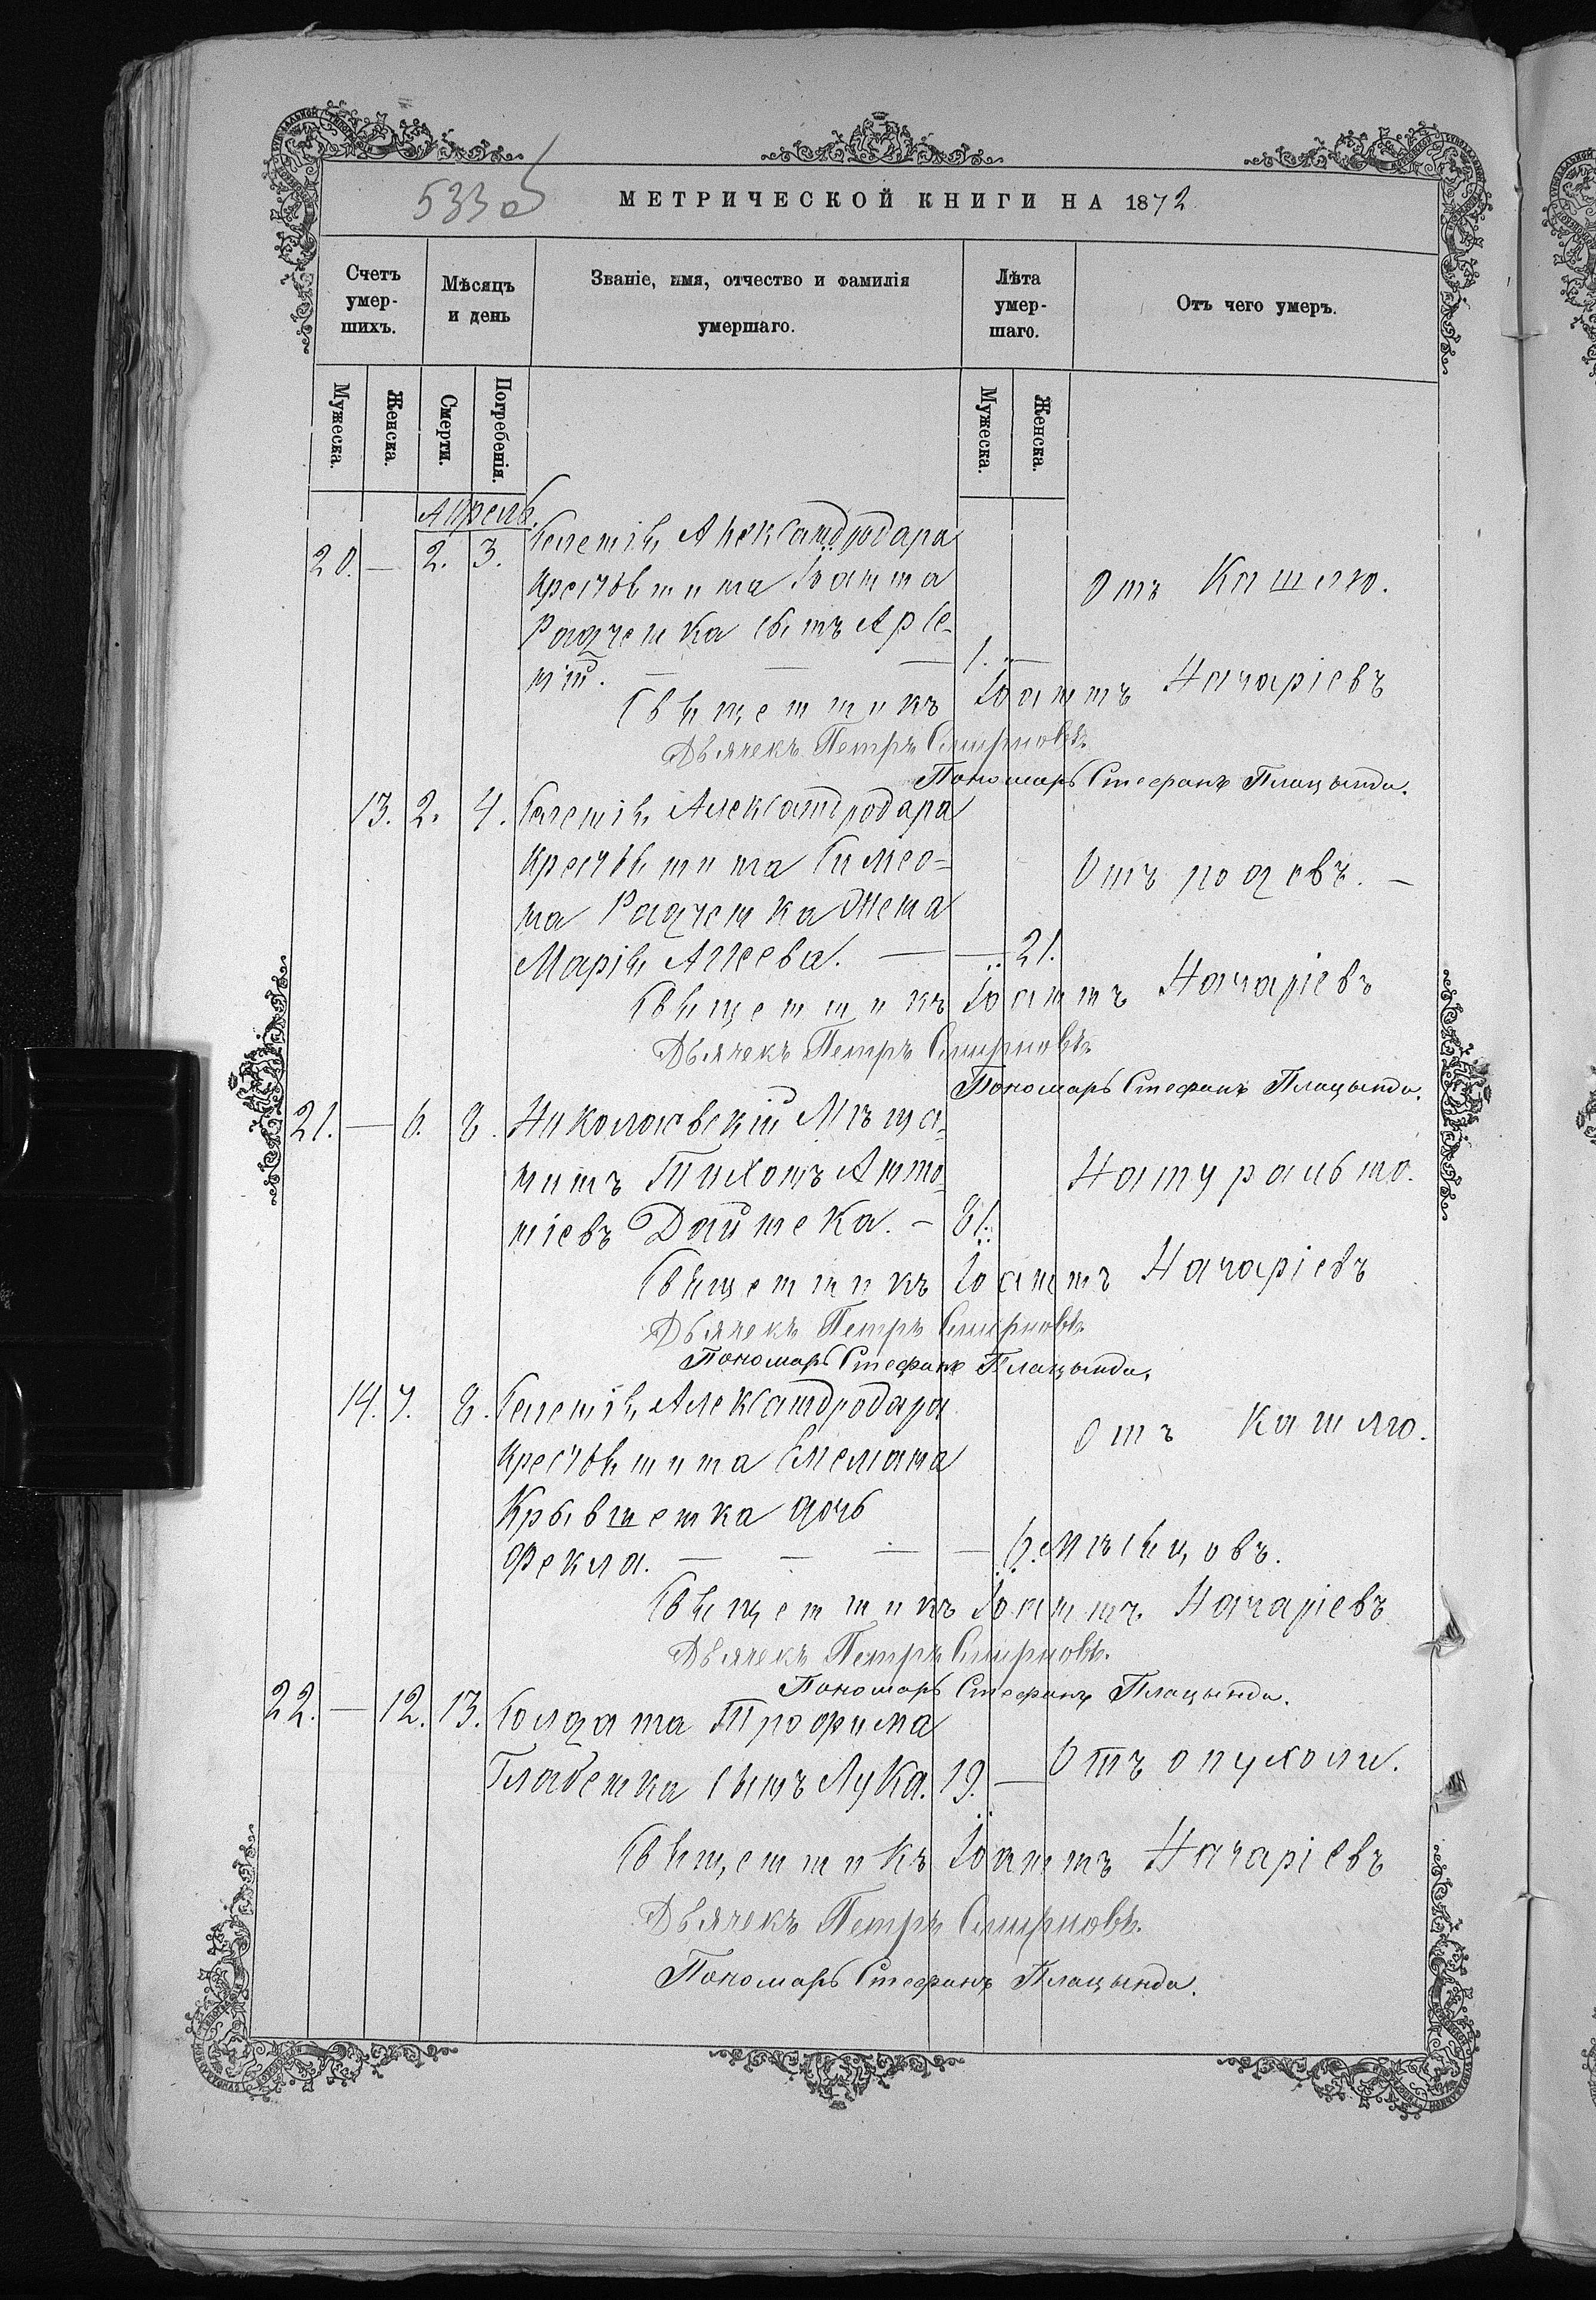 533 об
МЕТРИЧЕСКОЙ КНИГИ НА 1872
Счетъ умер-шихъ.
Мѣсяцъ и день
Званіе, имя, отчество и фамилія умершаго.
Лѣта умер-шаго.
Отъ чего умеръ.
Мужеска. Женска. Смерти. Погребенія. Мужеска. Женска.
Апрель.
20. — 2. 3. Селенія Александродара
крестьянина Іоанна Отъ Кашлю.
Радченка сынъ Арсе-
ній. — — — 1. —
Священникъ Іоаннъ Начаріевъ
Дьячекъ Петръ Смирновъ.
Пономарь Стефанъ Плацында.
13. 2. 4. Селенія Александродара
крестьянина Симео- Отъ родовъ. —
на Радченка жена
Марія Агѣева. — — 21.
Священникъ Іоаннъ Начаріевъ
Дьячекъ Петръ Смирновъ
Пономарь Стефанъ Плацында.
21. — 6. 8. Николаевскій Мѣща-
нинъ Тихонъ Анто- Натурально.
ніевъ Дайнека. — 81.
Священникъ Іоаннъ Начаріевъ
Дьячекъ Петръ Смирновъ.
Пономарь Стефанъ Плацында.
14. 7. 8. Селенія Александродара
крестьянина Емелиана Отъ Кашлю.
Крывшенка дочь
Фекла. — — — — 6. мѣсяцовъ.
Священникъ Іоаннъ Начаріевъ
Дьячекъ Петръ Смирновъ.
Пономарь Стефанъ Плацында.
22. — 12. 13. Солдата Трофима
Глабенка сынъ Лука. 19. — Отъ опухоли.
Священникъ Іоаннъ Начаріевъ
Дьячекъ Петръ Смирновъ.
Пономарь Стефанъ Плацында.